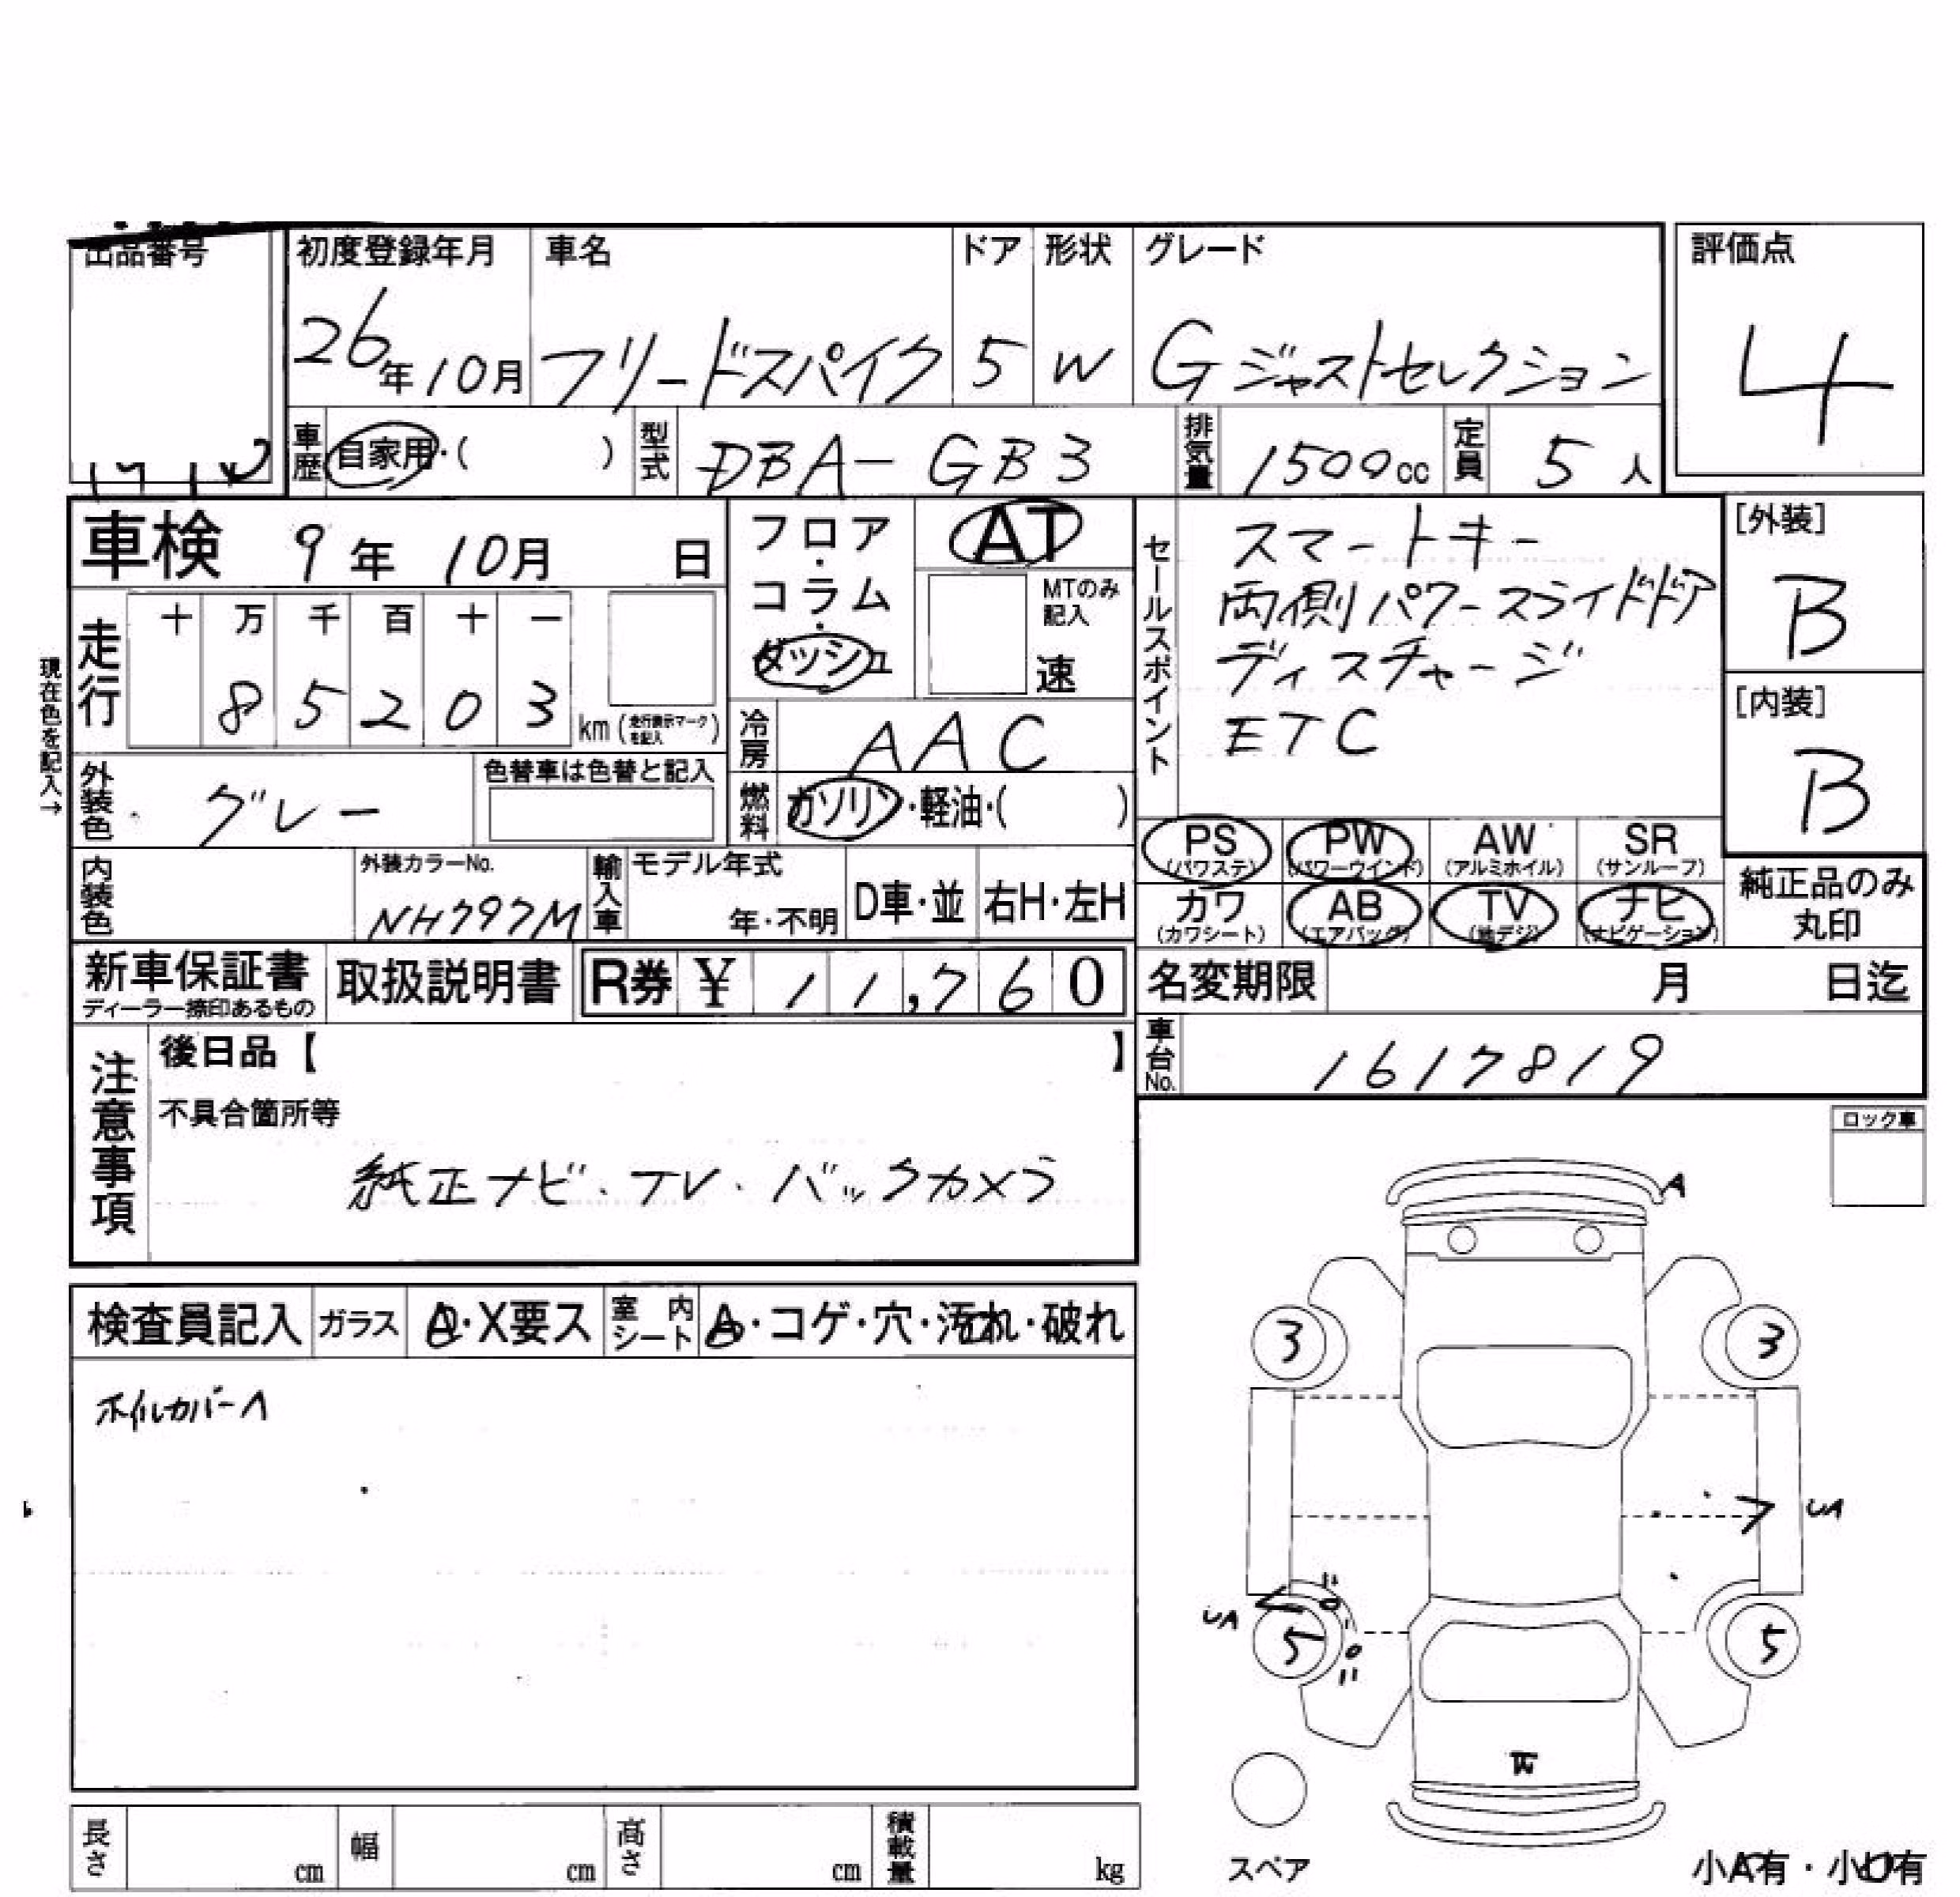 出品番号
初度登録年月 車名 ドア 形状 グレード
26年10月 フリードスパイク 5 W Gジャストセレクション
評価点
4
車歴 自家用・( ) 型式 DBA-GB3 排気量 1500cc 定員 5人
車検 9年 10月 日
フロア・コラム・ダッシュ
AT
MTのみ記入
速
セールスポイント
スマートキー
両側パワースライドドア
ディスチャージ
ETC
[外装]
B
[内装]
B
現在色を記入→
走行 十 万 千 百 十 一
8 5 2 0 3 km (走行表示マークを記入)
冷房 AAC
外装色 グレー 色替車は色替と記入
燃料 ガソリン・軽油・( )
PS (パワステ) PW (パワーウインド) AW (アルミホイル) SR (サンルーフ)
カワ (カワシート) AB (エアバッグ) TV (地デジ) ナビ (ナビゲーション)
純正品のみ丸印
内装色 外装カラーNo. NH797M 輸入車 モデル年式 年・不明 D車・並 右H・左H
新車保証書 ディーラー捺印あるもの 取扱説明書 R券 ¥ 11,760
名変期限 月 日迄
車台No. 1617819
注意事項
後日品【 】
不具合箇所等
純正ナビ・TV・バックカメラ
ロック車
検査員記入 ガラス A・X要ス 室内シート A・コゲ・穴・汚れ・破れ
ホイルカバーA
A
3 3
UA
UA
5 5
スペア
長さ cm 幅 cm 高さ cm 積載量 kg
小A有・小U有